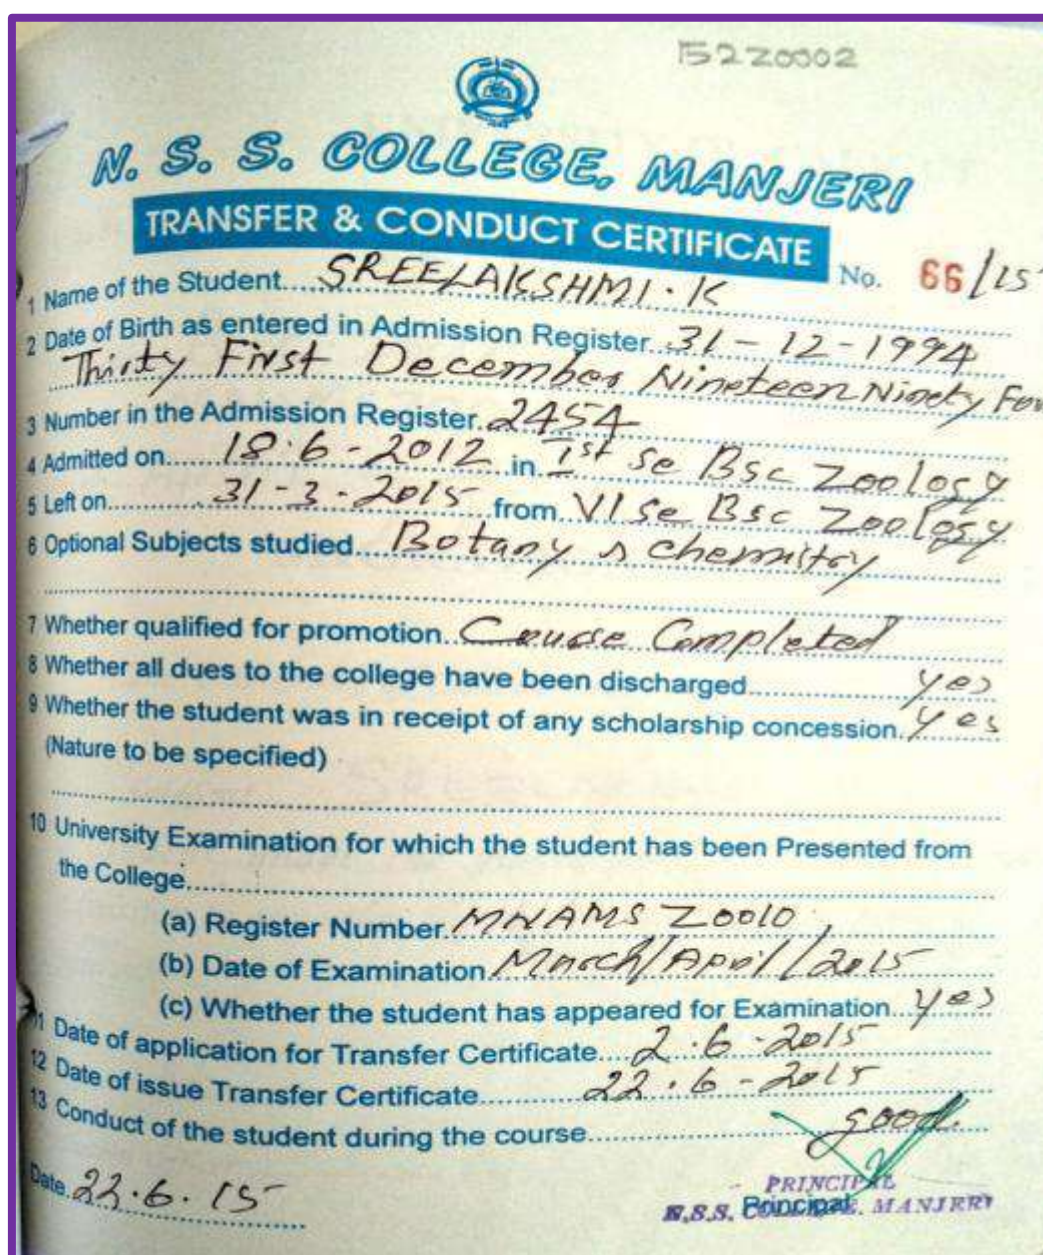 15220002
N. S. S. COLLEGE, MANJERI
TRANSFER & CONDUCT CERTIFICATE
No. 66/15
1 Name of the Student....SREELAKSHMI. K
2 Date of Birth as entered in Admission Register..31-12-1994
Thirty First December Nineteen Ninety Fou
3 Number in the Admission Register.2454
4 Admitted on....18.6-2012...in Ist Se Bsc Zoology
5 Left on....31-3-2015...from VI Se Bsc Zoology
6 Optional Subjects studied....Botany & Chemistry
7 Whether qualified for promotion..Course Completed
8 Whether all dues to the college have been discharged....yes
9 Whether the student was in receipt of any scholarship concession.yes
(Nature to be specified)
10 University Examination for which the student has been Presented from
the College
(a) Register Number.MNAMSZ0010
(b) Date of Examination March/April/2015
(c) Whether the student has appeared for Examination..yes
11 Date of application for Transfer Certificate....2.6-2015
12 Date of issue Transfer Certificate....22.6-2015
13 Conduct of the student during the course....good
Date.22.6.15
PRINCIPAL
Principal
N.S.S. COLLEGE. MANJERI